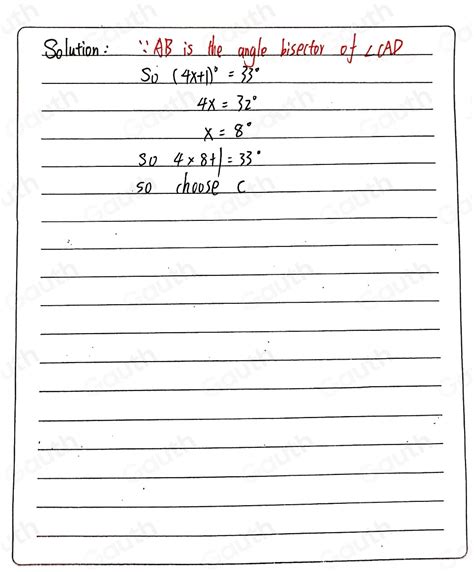 Solution: ∵ AB is the angle bisector of ∠CAD
So (4x+1)° = 33°
4x = 32°
x = 8°
so 4×8+1 = 33°
so choose C